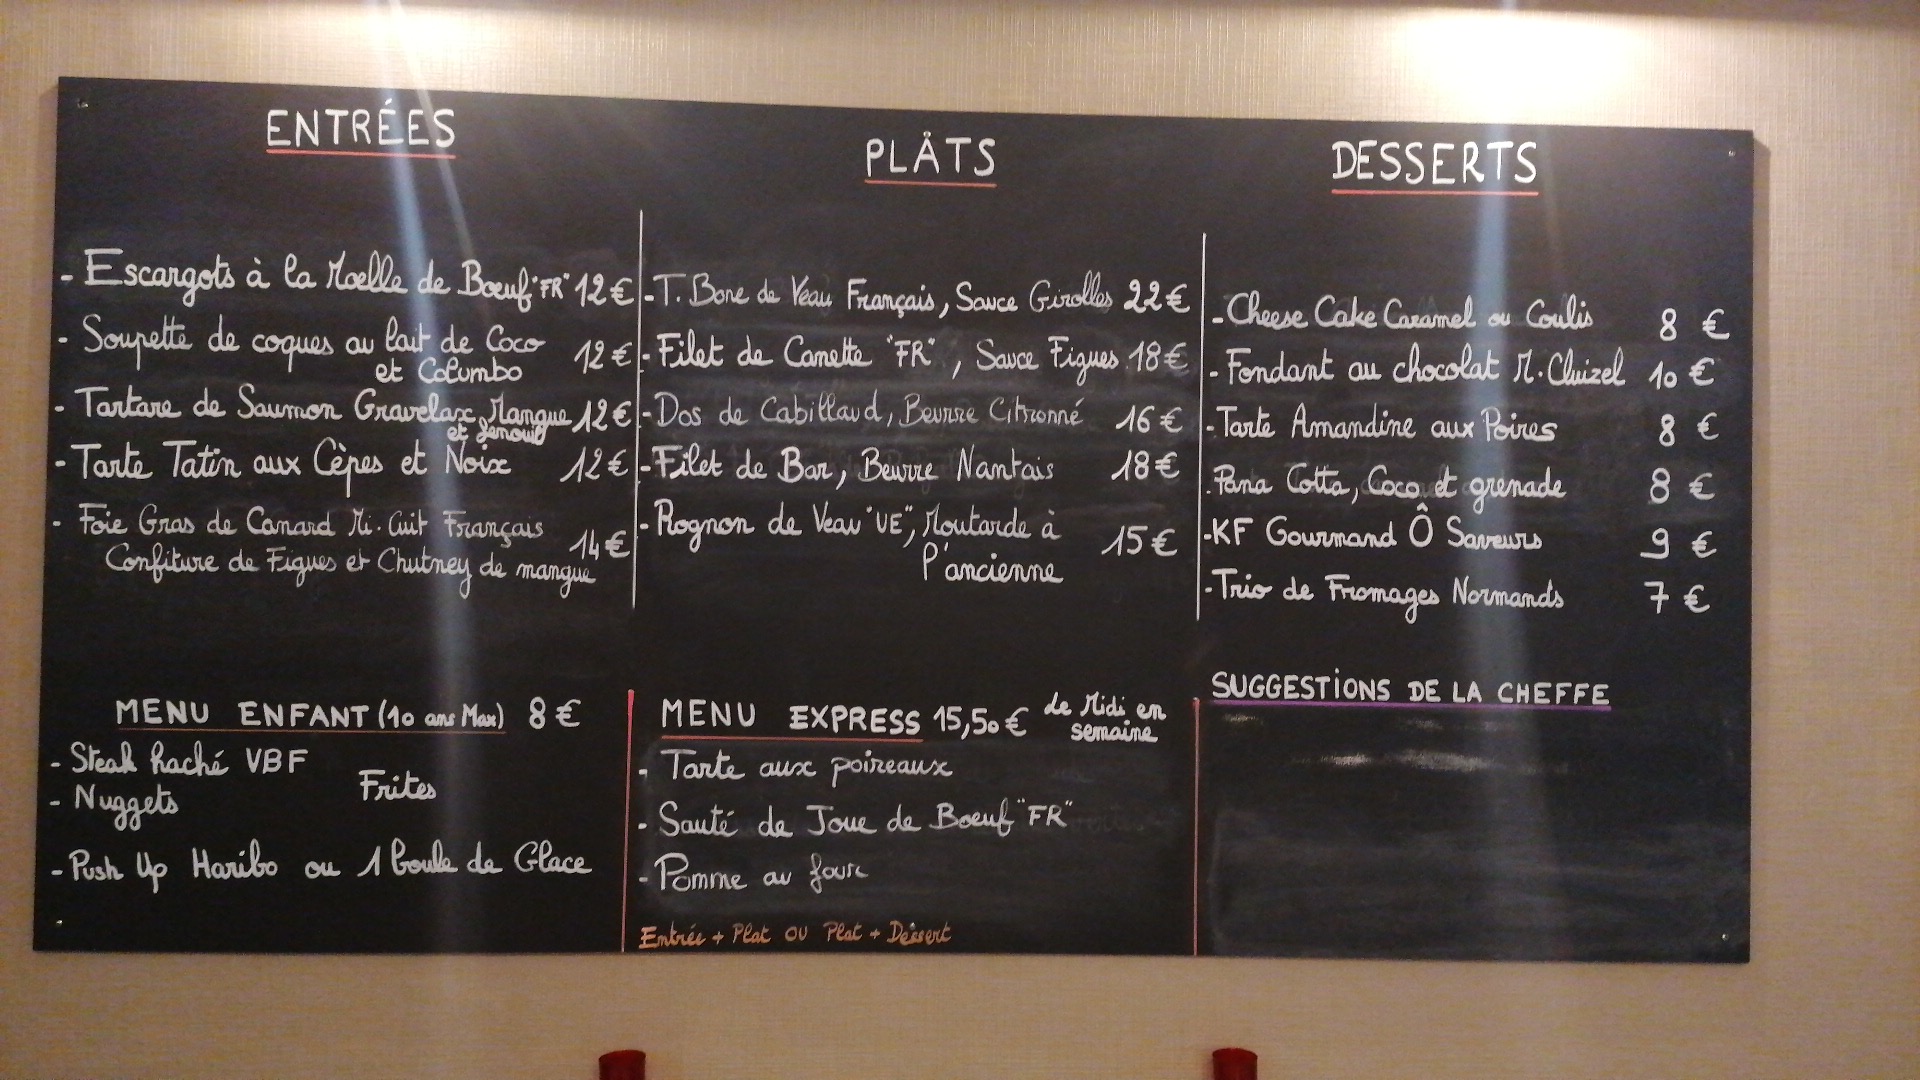 ENTRÉES
- Escargots à la Moelle de Boeuf "FR" 12€
- Soupette de coques au lait de Coco
et Colombo 12€
- Tartare de Saumon Gravelax, Mangue 12€
et fenouil
- Tarte Tatin aux Cèpes et Noix 12€
- Foie Gras de Canard Mi-Cuit Français
Confiture de Figues et Chutney de mangue 14€
PLÂTS
- T. Bone de Veau Français, Sauce Girolles 22€
- Filet de Canette "FR", Sauce Figues 18€
- Dos de Cabillaud, Beurre Citronné 16€
- Filet de Bar, Beurre Nantais 18€
- Rognon de Veau "UE", Moutarde à
l'ancienne 15€
DESSERTS
- Cheese Cake Caramel ou Coulis 8 €
- Fondant au chocolat M. Cluizel 10 €
- Tarte Amandine aux Poires 8 €
- Pana Cotta, Coco et grenade 8 €
- KF Gourmand Ô Saveurs 9 €
- Trio de Fromages Normands 7 €
MENU ENFANT (10 ans Max) 8€
- Steak haché VBF
- Nuggets
Frites
- Push Up Haribo ou 1 boule de Glace
MENU EXPRESS 15,50€ de Midi en
semaine
- Tarte aux poireaux
- Sauté de Joue de Boeuf "FR"
- Pomme au four
Entrée + Plat OU Plat + Dessert
SUGGESTIONS DE LA CHEFFE